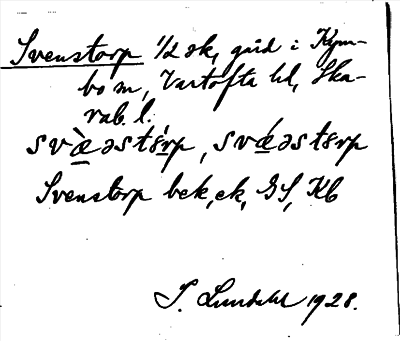 Svenstorp 1/2 sk, gård i Kym-
bo sn, Vartofta hd, Ska-
rab. l.
svæ̀əstórp, svǽəstorp
Svenstorp bek, ek, GS, Kb
S. Lundahl 1928.